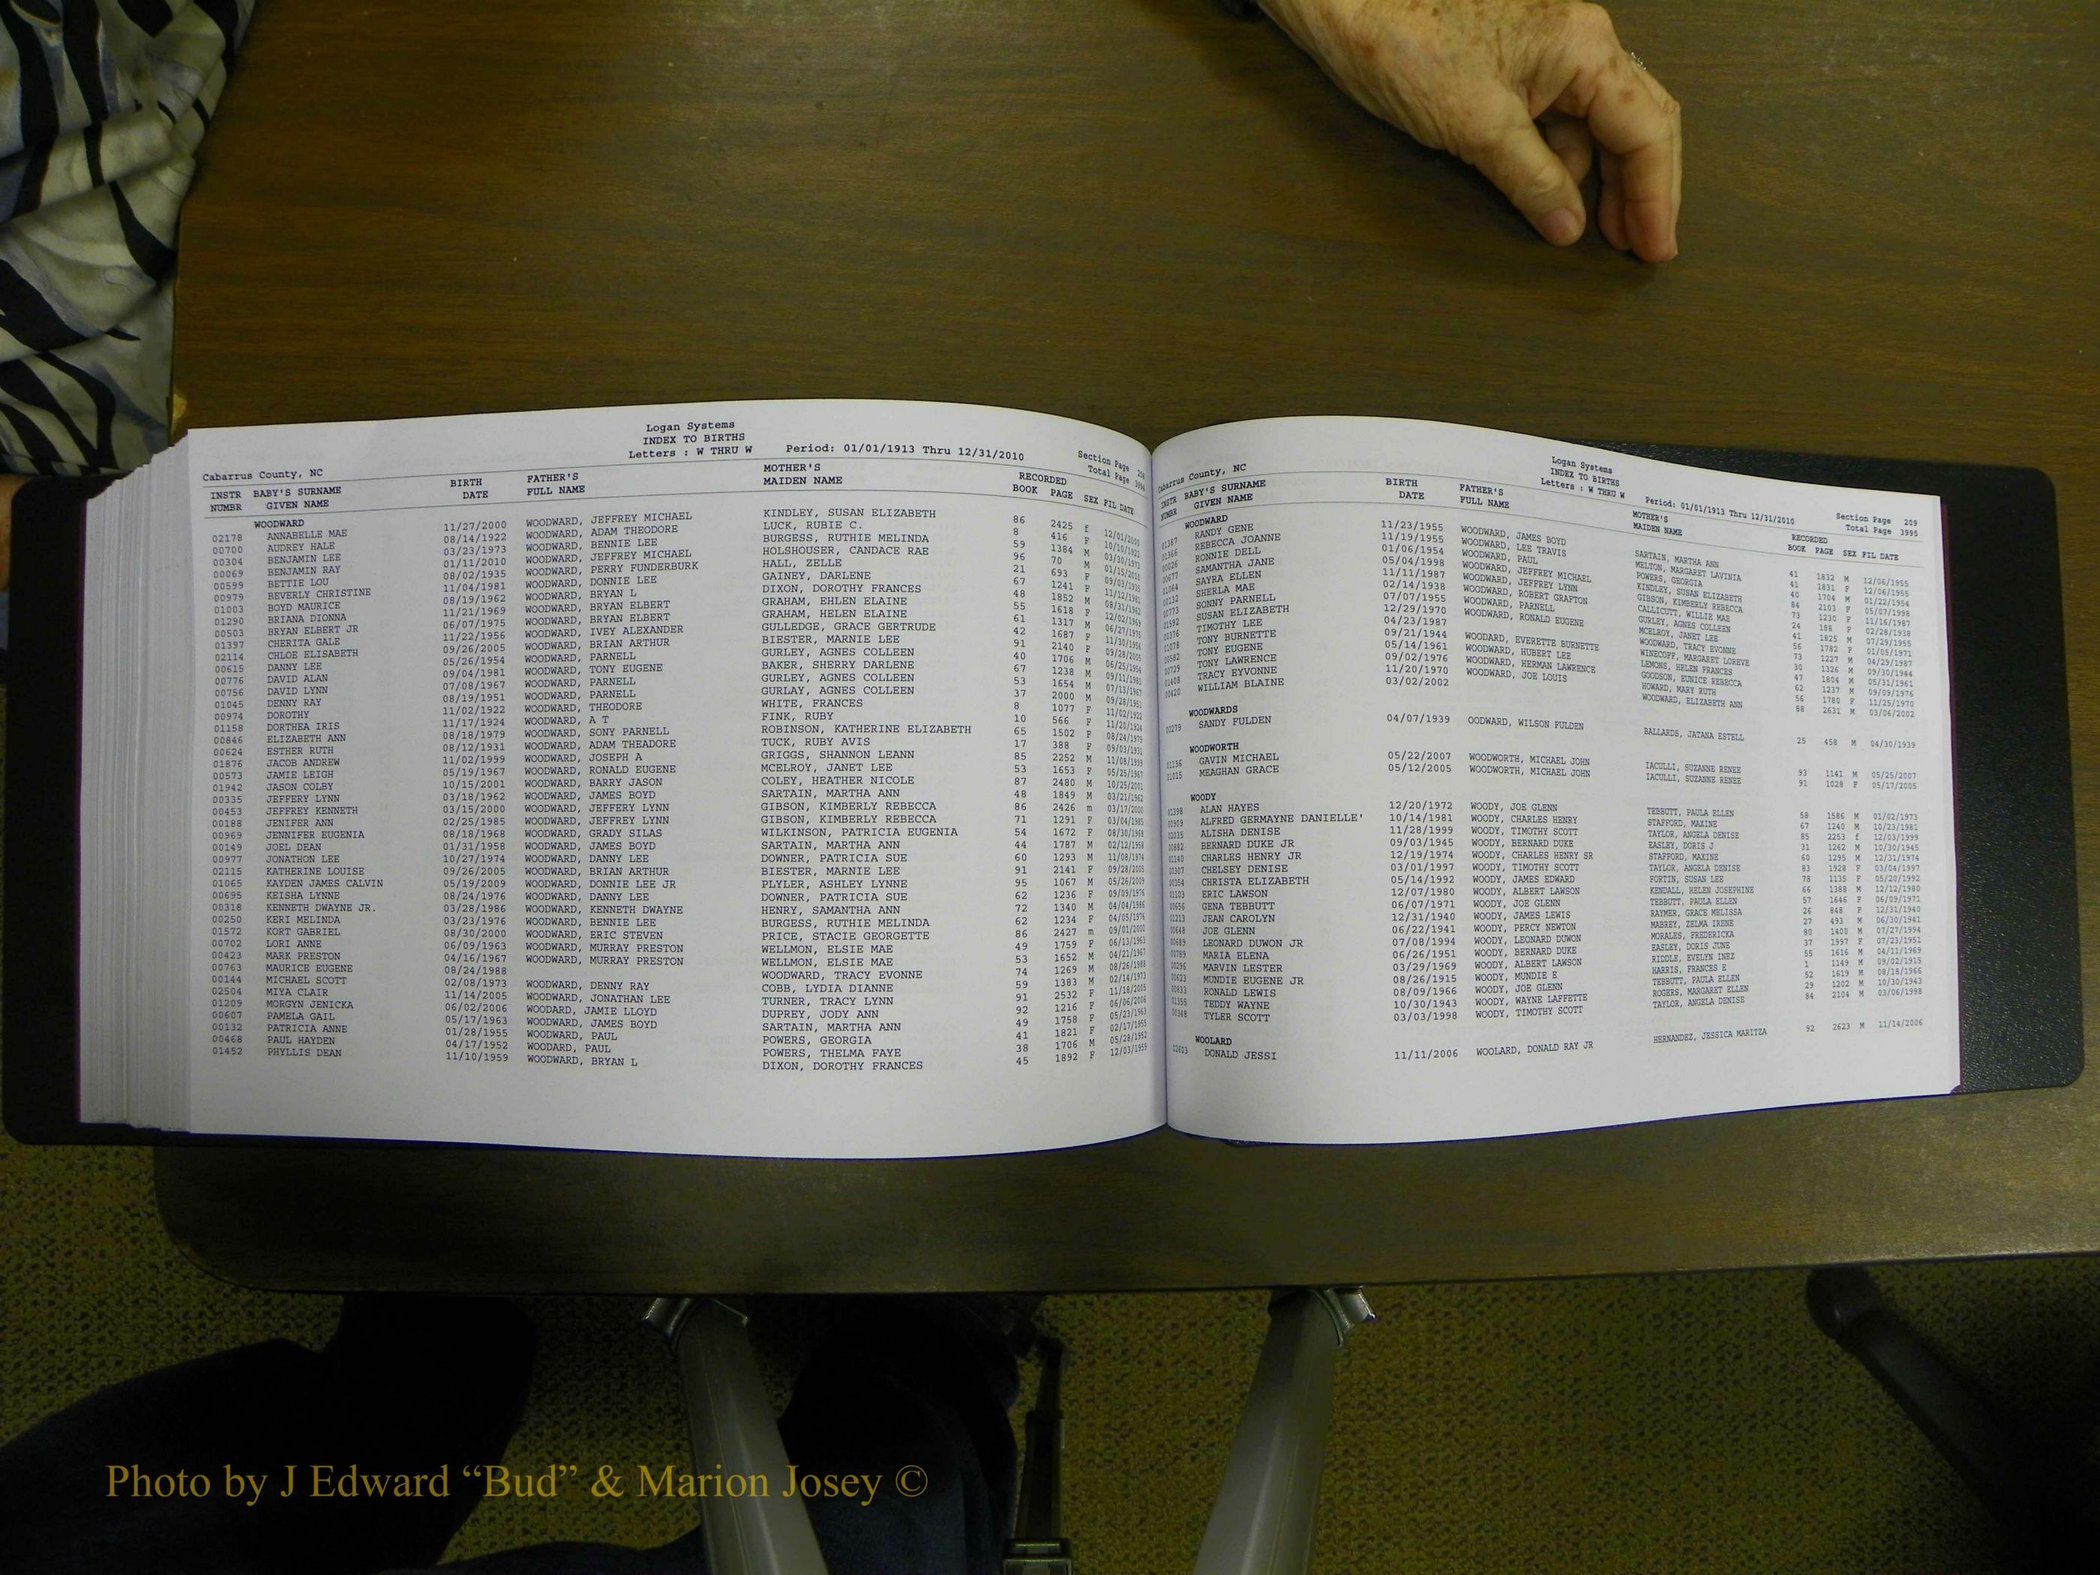 Logan Systems
INDEX TO BIRTHS
Cabarrus County, NC Letters : W THRU W Period: 01/01/1913 Thru 12/31/2010 Section Page 208
Total Page 3994
INSTR BABY'S SURNAME BIRTH FATHER'S MOTHER'S RECORDED
NUMBR GIVEN NAME DATE FULL NAME MAIDEN NAME BOOK PAGE SEX FIL DATE
WOODWARD
02178 ANNABELLE MAE 11/27/2000 WOODWARD, JEFFREY MICHAEL KINDLEY, SUSAN ELIZABETH 86 2425 f 12/01/2000
00700 AUDREY HALE 08/14/1922 WOODWARD, ADAM THEODORE LUCK, RUBIE C. 8 416 F 10/10/1922
00304 BENJAMIN LEE 03/23/1973 WOODWARD, BENNIE LEE BURGESS, RUTHIE MELINDA 59 1384 M 03/30/1973
00069 BENJAMIN RAY 01/11/2010 WOODWARD, JEFFREY MICHAEL HOLSHOUSER, CANDACE RAE 96 70 M 01/15/2010
00599 BETTIE LOU 08/02/1935 WOODWARD, PERRY FUNDERBURK HALL, ZELLE 21 693 F 09/03/1935
00979 BEVERLY CHRISTINE 11/04/1981 WOODWARD, DONNIE LEE GAINEY, DARLENE 67 1241 F 11/12/1981
01003 BOYD MAURICE 08/19/1962 WOODWARD, BRYAN L DIXON, DOROTHY FRANCES 48 1852 M 08/31/1962
01290 BRIANA DIONNA 11/21/1969 WOODWARD, BRYAN ELBERT GRAHAM, EHLEN ELAINE 55 1618 F 12/02/1969
00503 BRYAN ELBERT JR 06/07/1975 WOODWARD, BRYAN ELBERT GRAHAM, HELEN ELAINE 61 1317 M 06/27/1975
01397 CHERITA GALE 11/22/1956 WOODWARD, IVEY ALEXANDER GULLEDGE, GRACE GERTRUDE 42 1687 F 11/30/1956
02114 CHLOE ELISABETH 09/26/2005 WOODWARD, BRIAN ARTHUR BIESTER, MARNIE LEE 91 2140 F 09/28/2005
00615 DANNY LEE 05/26/1954 WOODWARD, PARNELL GURLEY, AGNES COLLEEN 40 1706 M 06/25/1954
00776 DAVID ALAN 09/04/1981 WOODWARD, TONY EUGENE BAKER, SHERRY DARLENE 67 1238 M 09/11/1981
00756 DAVID LYNN 07/08/1967 WOODWARD, PARNELL GURLEY, AGNES COLLEEN 53 1654 M 07/13/1967
01045 DENNY RAY 08/19/1951 WOODWARD, PARNELL GURLAY, AGNES COLLEEN 37 2000 M 09/28/1951
00974 DOROTHY 11/02/1922 WOODWARD, THEODORE WHITE, FRANCES 8 1077 F 11/02/1922
01158 DORTHEA IRIS 11/17/1924 WOODWARD, A T FINK, RUBY 10 566 F 11/20/1924
00846 ELIZABETH ANN 08/18/1979 WOODWARD, SONY PARNELL ROBINSON, KATHERINE ELIZABETH 65 1502 F 08/24/1979
00624 ESTHER RUTH 08/12/1931 WOODWARD, ADAM THEADORE TUCK, RUBY AVIS 17 388 F 09/03/1931
01876 JACOB ANDREW 11/02/1999 WOODWARD, JOSEPH A GRIGGS, SHANNON LEANN 85 2252 M 11/08/1999
00573 JAMIE LEIGH 05/19/1967 WOODWARD, RONALD EUGENE MCELROY, JANET LEE 53 1653 F 05/25/1967
01942 JASON COLBY 10/15/2001 WOODWARD, BARRY JASON COLEY, HEATHER NICOLE 87 2480 M 10/25/2001
00335 JEFFERY LYNN 03/18/1962 WOODWARD, JAMES BOYD SARTAIN, MARTHA ANN 48 1849 M 03/21/1962
00453 JEFFREY KENNETH 03/15/2000 WOODWARD, JEFFERY LYNN GIBSON, KIMBERLY REBECCA 86 2426 m 03/17/2000
00188 JENIFER ANN 02/25/1985 WOODWARD, JEFFREY LYNN GIBSON, KIMBERLY REBECCA 71 1291 F 03/04/1985
00969 JENNIFER EUGENIA 08/18/1968 WOODWARD, GRADY SILAS WILKINSON, PATRICIA EUGENIA 54 1672 F 08/30/1968
00149 JOEL DEAN 01/31/1958 WOODWARD, JAMES BOYD SARTAIN, MARTHA ANN 44 1787 M 02/12/1958
00977 JONATHON LEE 10/27/1974 WOODWARD, DANNY LEE DOWNER, PATRICIA SUE 60 1293 M 11/08/1974
02115 KATHERINE LOUISE 09/26/2005 WOODWARD, BRIAN ARTHUR BIESTER, MARNIE LEE 91 2141 F 09/28/2005
01065 KAYDEN JAMES CALVIN 05/19/2009 WOODWARD, DONNIE LEE JR PLYLER, ASHLEY LYNNE 95 1067 M 05/26/2009
00695 KEISHA LYNNE 08/24/1976 WOODWARD, DANNY LEE DOWNER, PATRICIA SUE 62 1236 F 09/09/1976
00318 KENNETH DWAYNE JR. 03/28/1986 WOODWARD, KENNETH DWAYNE HENRY, SAMANTHA ANN 72 1340 M 04/04/1986
00250 KERI MELINDA 03/23/1976 WOODWARD, BENNIE LEE BURGESS, RUTHIE MELINDA 62 1234 F 04/05/1976
01572 KORT GABRIEL 08/30/2000 WOODWARD, ERIC STEVEN PRICE, STACIE GEORGETTE 86 2427 m 09/01/2000
00702 LORI ANNE 06/09/1963 WOODWARD, MURRAY PRESTON WELLMON, ELSIE MAE 49 1759 F 06/13/1963
00423 MARK PRESTON 04/16/1967 WOODWARD, MURRAY PRESTON WELLMON, ELSIE MAE 53 1652 M 04/21/1967
00763 MAURICE EUGENE 08/24/1988 WOODWARD, TRACY EVONNE 74 1269 M 08/26/1988
00144 MICHAEL SCOTT 02/08/1973 WOODWARD, DENNY RAY COBB, LYDIA DIANNE 59 1383 M 02/14/1973
02504 MIYA CLAIR 11/14/2005 WOODWARD, JONATHAN LEE TURNER, TRACY LYNN 91 2532 F 11/18/2005
01209 MORGYN JENICKA 06/02/2006 WOODARD, JAMIE LLOYD DUPREY, JODY ANN 92 1216 F 06/06/2006
00607 PAMELA GAIL 05/17/1963 WOODWARD, JAMES BOYD SARTAIN, MARTHA ANN 49 1758 F 05/23/1963
00132 PATRICIA ANNE 01/28/1955 WOODWARD, PAUL POWERS, GEORGIA 41 1821 F 02/17/1955
00468 PAUL HAYDEN 04/17/1952 WOODARD, PAUL POWERS, THELMA FAYE 38 1706 M 05/28/1952
01452 PHYLLIS DEAN 11/10/1959 WOODWARD, BRYAN L DIXON, DOROTHY FRANCES 45 1892 F 12/03/1959
Logan Systems
INDEX TO BIRTHS
Cabarrus County, NC Letters : W THRU W Period: 01/01/1913 Thru 12/31/2010 Section Page 209
Total Page 3995
INSTR BABY'S SURNAME BIRTH FATHER'S MOTHER'S RECORDED
NUMBR GIVEN NAME DATE FULL NAME MAIDEN NAME BOOK PAGE SEX FIL DATE
WOODWARD
01387 RANDY GENE 11/23/1955 WOODWARD, JAMES BOYD SARTAIN, MARTHA ANN 41 1832 M 12/06/1955
01366 REBECCA JOANNE 11/19/1955 WOODWARD, LEE TRAVIS MELTON, MARGARET LAVINIA 41 1831 F 12/06/1955
00026 RONNIE DELL 01/06/1954 WOODWARD, PAUL POWERS, GEORGIA 40 1704 M 01/22/1954
00677 SAMANTHA JANE 05/04/1998 WOODWARD, JEFFREY MICHAEL KINDLEY, SUSAN ELIZABETH 84 2103 F 05/07/1998
01064 SAYRA ELLEN 11/11/1987 WOODWARD, JEFFREY LYNN GIBSON, KIMBERLY REBECCA 73 1230 F 11/16/1987
00132 SHERLA MAE 02/14/1938 WOODWARD, ROBERT GRAFTON CALLICUTT, WILLIE MAE 24 188 F 02/28/1938
00773 SONNY PARNELL 07/07/1955 WOODWARD, PARNELL GURLEY, AGNES COLLEEN 41 1825 M 07/29/1955
01592 SUSAN ELIZABETH 12/29/1970 WOODWARD, RONALD EUGENE MCELROY, JANET LEE 56 1782 F 01/05/1971
00376 TIMOTHY LEE 04/23/1987 WOODWARD, TRACY EVONNE 73 1227 M 04/29/1987
01078 TONY BURNETTE 09/21/1944 WOODARD, EVERETTE BURNETTE WINECOFF, MARGARET LOREVE 30 1326 M 09/30/1944
00582 TONY EUGENE 05/14/1961 WOODWARD, HUBERT LEE LEMONS, HELEN FRANCES 47 1804 M 05/31/1961
00729 TONY LAWRENCE 09/02/1976 WOODWARD, HERMAN LAWRENCE GOODSON, EUNICE REBECCA 62 1237 M 09/09/1976
01408 TRACY EYVONNE 11/20/1970 WOODWARD, JOE LOUIS HOWARD, MARY RUTH 56 1780 F 11/25/1970
00420 WILLIAM BLAINE 03/02/2002 WOODWARD, ELIZABETH ANN 88 2631 M 03/06/2002
WOODWARDS
00279 SANDY FULDEN 04/07/1939 OODWARD, WILSON FULDEN BALLARDS, JATANA ESTELL 25 458 M 04/30/1939
WOODWORTH
01136 GAVIN MICHAEL 05/22/2007 WOODWORTH, MICHAEL JOHN IACULLI, SUZANNE RENEE 93 1141 M 05/25/2007
01015 MEAGHAN GRACE 05/12/2005 WOODWORTH, MICHAEL JOHN IACULLI, SUZANNE RENEE 91 1028 F 05/17/2005
WOODY
01398 ALAN HAYES 12/20/1972 WOODY, JOE GLENN TEBBUTT, PAULA ELLEN 58 1586 M 01/02/1973
00909 ALFRED GERMAYNE DANIELLE' 10/14/1981 WOODY, CHARLES HENRY STAFFORD, MAXINE 67 1240 M 10/23/1981
02035 ALISHA DENISE 11/28/1999 WOODY, TIMOTHY SCOTT TAYLOR, ANGELA DENISE 85 2253 f 12/03/1999
00882 BERNARD DUKE JR 09/03/1945 WOODY, BERNARD DUKE EASLEY, DORIS J 31 1262 M 10/30/1945
01140 CHARLES HENRY JR 12/19/1974 WOODY, CHARLES HENRY SR STAFFORD, MAXINE 60 1295 M 12/31/1974
00307 CHELSEY DENISE 03/01/1997 WOODY, TIMOTHY SCOTT TAYLOR, ANGELA DENISE 83 1928 F 03/04/1997
00354 CHRISTA ELIZABETH 05/14/1992 WOODY, JAMES EDWARD FORTIN, SUSAN LEE 78 1135 F 05/20/1992
01103 ERIC LAWSON 12/07/1980 WOODY, ALBERT LAWSON KENDALL, HELEN JOSEPHINE 66 1388 M 12/12/1980
00656 GENA TEBBUTT 06/07/1971 WOODY, JOE GLENN TEBBUTT, PAULA ELLEN 57 1646 F 06/09/1971
01213 JEAN CAROLYN 12/31/1940 WOODY, JAMES LEWIS RAYMER, GRACE MELISSA 26 848 F 12/31/1940
00648 JOE GLENN 06/22/1941 WOODY, PERCY NEWTON MABREY, ZELMA IRENE 27 493 M 06/30/1941
00689 LEONARD DUWON JR 07/08/1994 WOODY, LEONARD DUWON MORALES, FREDERICKA 80 1400 M 07/27/1994
00789 MARIA ELENA 06/26/1951 WOODY, BERNARD DUKE EASLEY, DORIS JUNE 37 1997 F 07/23/1951
00296 MARVIN LESTER 03/29/1969 WOODY, ALBERT LAWSON RIDDLE, EVELYN INEZ 55 1616 M 04/11/1969
00623 MUNDIE EUGENE JR 08/26/1915 WOODY, MUNDIE E HARRIS, FRANCES E 1 1149 M 09/02/1915
00833 RONALD LEWIS 08/09/1966 WOODY, JOE GLENN TEBBUTT, PAULA ELLEN 52 1619 M 08/18/1966
01355 TEDDY WAYNE 10/30/1943 WOODY, WAYNE LAFFETTE ROGERS, MARGARET ELLEN 29 1202 M 10/30/1943
00348 TYLER SCOTT 03/03/1998 WOODY, TIMOTHY SCOTT TAYLOR, ANGELA DENISE 84 2104 M 03/06/1998
WOOLARD
02603 DONALD JESSI 11/11/2006 WOOLARD, DONALD RAY JR HERNANDEZ, JESSICA MARITZA 92 2623 M 11/14/2006
Photo by J Edward “Bud” & Marion Josey ©